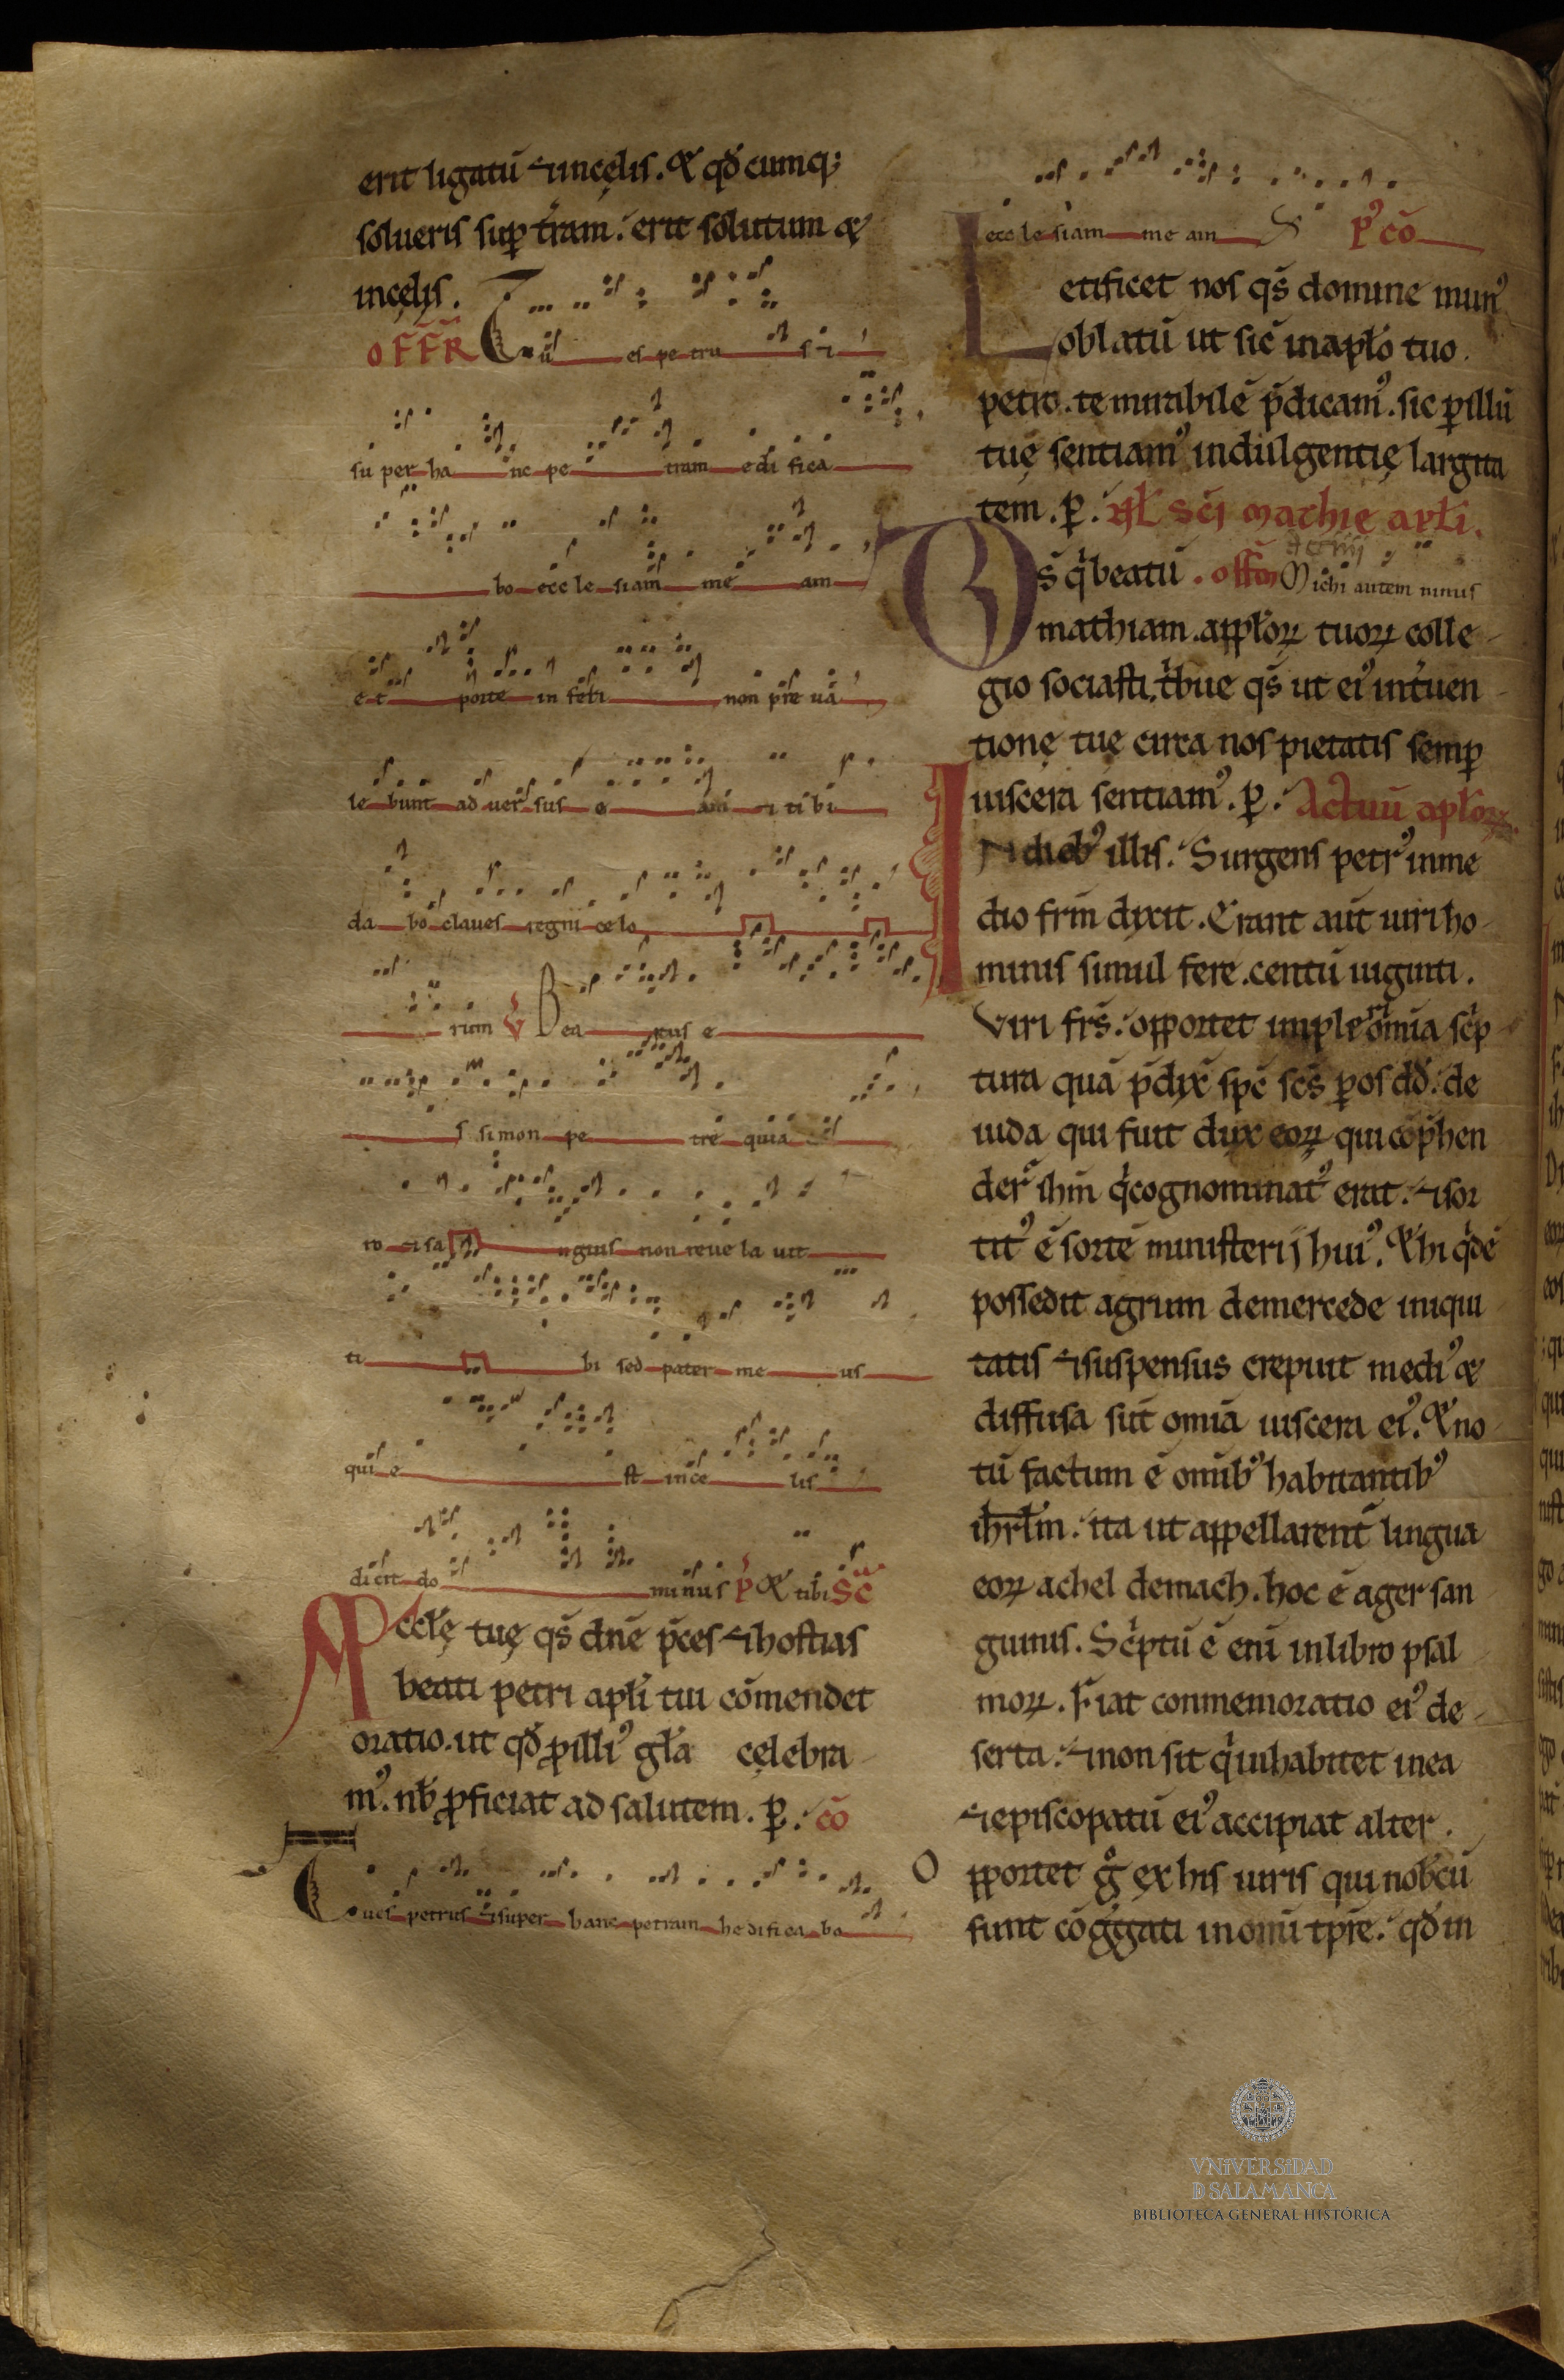 erit ligatū ⁊ incęlis. & qđ cumq;
solueris sup̄ t̄ram. erit solutum &
incęlis.
OFFR Tu es pe tru s ⁊
su per ha nc pe tram edi fica
bo ecc le siam me am
e t porte in feri non pre ua
le bunt ad uer sus e am ⁊ tibi
da bo claues regni ce lo
rum V Bea tus e
s simon pe tre quia
ro ⁊ sa nguis non reue la uit
ti bi sed pater me us
qui e st in ce lis
dicit do minus P & tibi SC̄
Accłę tuę qs̄ dn̄e p̄ces ⁊ hostias
beati petri apłi tui cōmendet
oratio. ut qđ p illiꝰ gła celebra
mꝰ. nb̄ proficiat ad salutem. p. cō
Tu es petrus ⁊ super hanc petram hedifica bo
ecc le siam me am S pꝰ cō
Letificet nos qs̄ domine munꝰ
oblatū ut sic̄ in apło tuo
petro. te mirabilē p̄dicamꝰ. sic p illū
tuę sentiamꝰ indulgentię largita
tem. p. sc̄i mathię apłi.
Ds̄ q̇ beatū. offm̄ Michi autem nimis
mathiam. appłoꝝ tuoꝝ colle
gio sociasti. ṫbue qs̄ ut eiꝰ int̄uen
tionę tuę circa nos pietatis semp̄
uiscera sentiamꝰ. p. Actuū apłoꝝ
IN diebꝰ illis. Surgens petrꝰ in me
dio frm̄ dixit. Erant aut̄ uiri ho
minis simul fere. centū uiginti.
Viri frs̄. opportet implere om̄ia sċp
tura quā p̄dix̄ sp̄c sc̄s p os dđ. de
iuda qui fuit dux eoꝝ qui cōp̄hen
der̄ ih̄m q̇ cognominatꝰ erat. ⁊ sor
titꝰ ē sortē ministerij huiꝰ. & hi q̇dē
possedit agrum demercede iniqui
tatis ⁊ suspensus crepuit mediꝰ &
diffusa sūt omīa uiscera eiꝰ. & no
tū factum ē omībꝰ habitantibꝰ
ih̄rłm. ita ut appellarent̄ lingua
eoꝝ achel demach. hoc ē ager san
guinis. Sċptū ē eni in libro psal
moꝝ. Fiat conmemoratio eiꝰ de
serta. ⁊ non sit q̇ inhabitet inea
⁊ episcopatū eiꝰ accipiat alter.
Opportet g̊ ex his uiris qui nob̄cū
sunt cōg̊gati in omī tp̄re. qđ in
VNiVERSiDAD
D SALAMANCA
BIBLIOTECA GENERAL HISTÓRICA